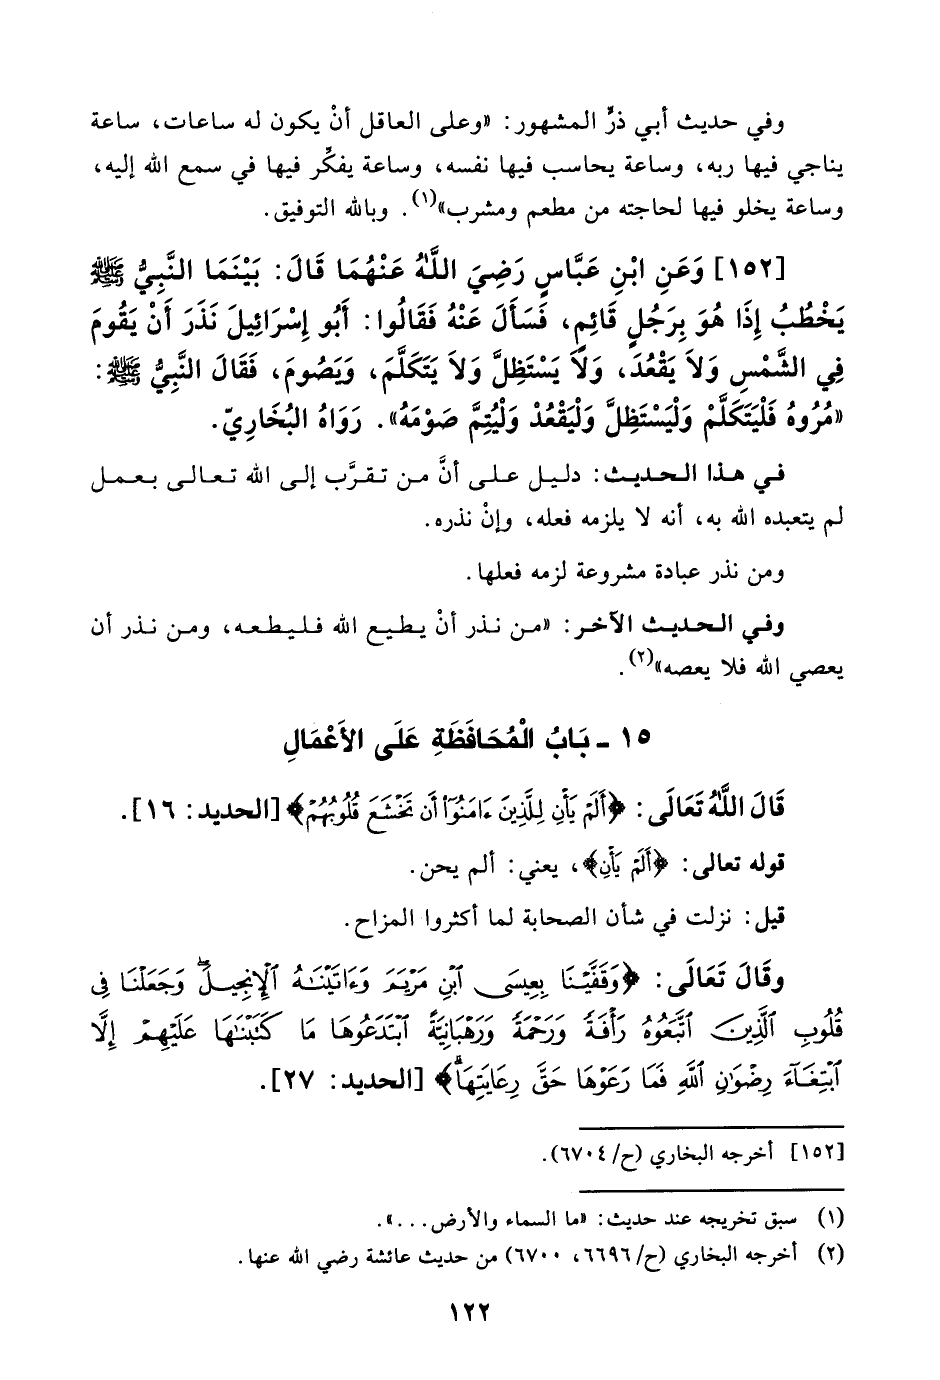 وفي حديث أبي ذرٍّ المشهور: «وعلى العاقل أنْ يكون له ساعات، ساعة
يناجي فيها ربه، وساعة يحاسب فيها نفسه، وساعة يفكِّر فيها في سمع الله إليه،
وساعة يخلو فيها لحاجته من مطعم ومشرب»(١). وبالله التوفيق.
[١٥٢] وَعَنِ ابْنِ عَبَّاسٍ رَضِيَ اللَّهُ عَنْهُمَا قَالَ: بَيْنَمَا النَّبِيُّ ﷺ
يَخْطُبُ إِذَا هُوَ بِرَجُلٍ قَائِمٍ، فَسَأَلَ عَنْهُ فَقَالُوا: أَبُو إِسْرَائِيلَ نَذَرَ أَنْ يَقُومَ
فِي الشَّمْسِ وَلاَ يَقْعُدَ، وَلاَ يَسْتَظِلَّ وَلاَ يَتَكَلَّمَ، وَيَصُومَ، فَقَالَ النَّبِيُّ ﷺ:
«مُرُوهُ فَلْيَتَكَلَّمْ وَلْيَسْتَظِلَّ وَلْيَقْعُدْ وَلْيُتِمَّ صَوْمَهُ». رَوَاهُ البُخَارِيّ.
في هذا الحديث: دليل على أنَّ من تقرَّب إلى الله تعالى بعمل
لم يتعبده الله به، أنه لا يلزمه فعله، وإنْ نذره.
ومن نذر عبادة مشروعة لزمه فعلها.
وفي الحديث الآخر: «من نذر أنْ يطيع الله فليطعه، ومن نذر أن
يعصي الله فلا يعصه»(٢).
١٥ - بَابُ الْمُحَافَظَةِ عَلَى الأَعْمَالِ
قَالَ اللَّهُ تَعَالَى: ﴿أَلَمْ يَأْنِ لِلَّذِينَ ءَامَنُوٓا۟ أَن تَخْشَعَ قُلُوبُهُمْ﴾ [الحديد: ١٦].
قوله تعالى: ﴿أَلَمْ يَأْنِ﴾، يعني: ألم يحن.
قيل: نزلت في شأن الصحابة لما أكثروا المزاح.
وقَالَ تَعَالَى: ﴿وَقَفَّيْنَا بِعِيسَى ٱبْنِ مَرْيَمَ وَءَاتَيْنَـٰهُ ٱلْإِنجِيلَۖ وَجَعَلْنَا فِى
قُلُوبِ ٱلَّذِينَ ٱتَّبَعُوهُ رَأْفَةً وَرَحْمَةً وَرَهْبَانِيَّةً ٱبْتَدَعُوهَا مَا كَتَبْنَـٰهَا عَلَيْهِمْ إِلَّا
ٱبْتِغَآءَ رِضْوَٰنِ ٱللَّهِ فَمَا رَعَوْهَا حَقَّ رِعَايَتِهَاۖ﴾ [الحديد: ٢٧].
[١٥٢] أخرجه البخاري (ح/ ٦٧٠٤).
(١) سبق تخريجه عند حديث: «ما السماء والأرض...».
(٢) أخرجه البخاري (ح/ ٦٦٩٦، ٦٧٠٠) من حديث عائشة رضي الله عنها.
١٢٢